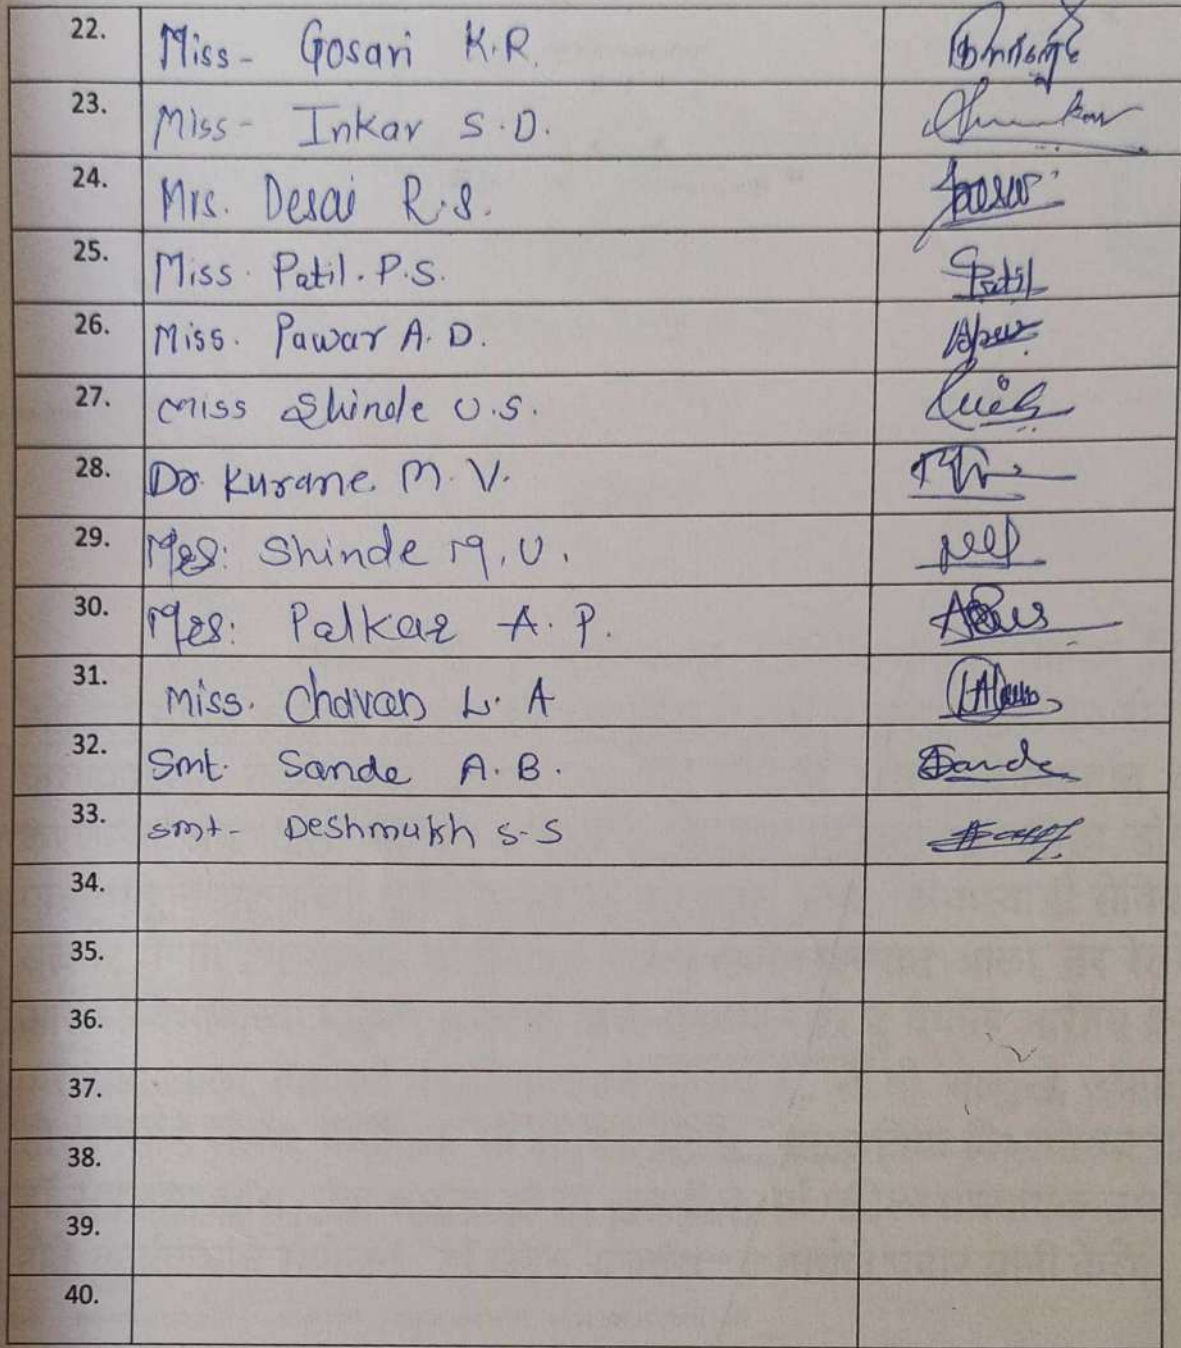 22. Miss- Gosavi K.R.
23. Miss- Inkar S.D.
24. Mrs. Desai R.S.
25. Miss. Patil. P.S. Patil
26. Miss. Pawar A.D.
27. Miss Shinde U.S.
28. Dr. Kurane. M.V.
29. Mrs: Shinde M.U.
30. Mrs: Palkar A.P.
31. Miss. Chavan L.A
32. Smt. Sande A.B. Sande
33. Smt- Deshmukh S-S
34.
35.
36.
37.
38.
39.
40.